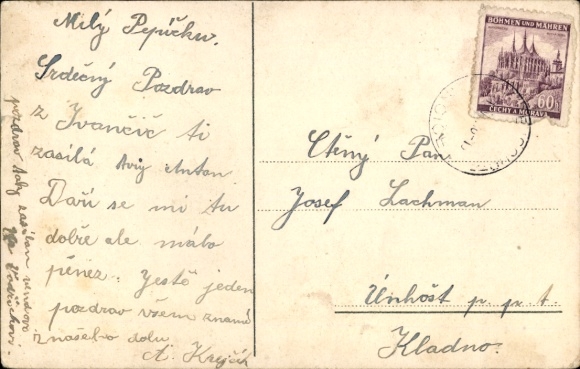 Milý Pepíčku.
Srdečný Pozdrav
z Ivančic ti
zasílá Anton
Daří se mi tu
dobře ale málo
peněz. Ještě jeden
pozdrav všem známi
z našeho dolu
A. Krejčík
pozdrav zasílám
BÖHMEN UND MÄHREN
60h
ČECHY A MORAVA
Ctěný Pan
Josef Lachman
Únhošt p. p. t.
Kladno.